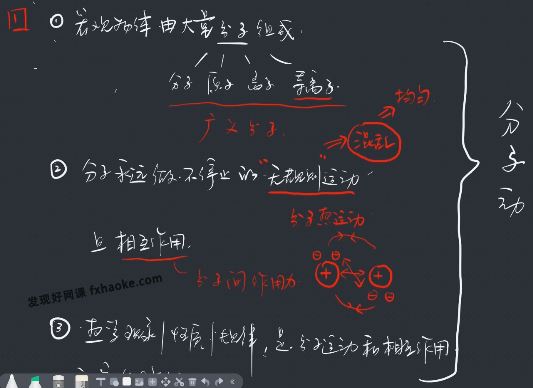 1
① 宏观物体由大量分子组成.
分子 原子 离子 等离子
广义分子.
均匀
混乱
② 分子永远做不停止的“无规则”运动
分子热运动
且相互作用.
分子间作用力
+ +
⊖ ⊖ ⊖ ⊖
发现好网课 fxhaoke.com
③ 热学现象/性质/规律, 是分子运动和相互作用
分子动